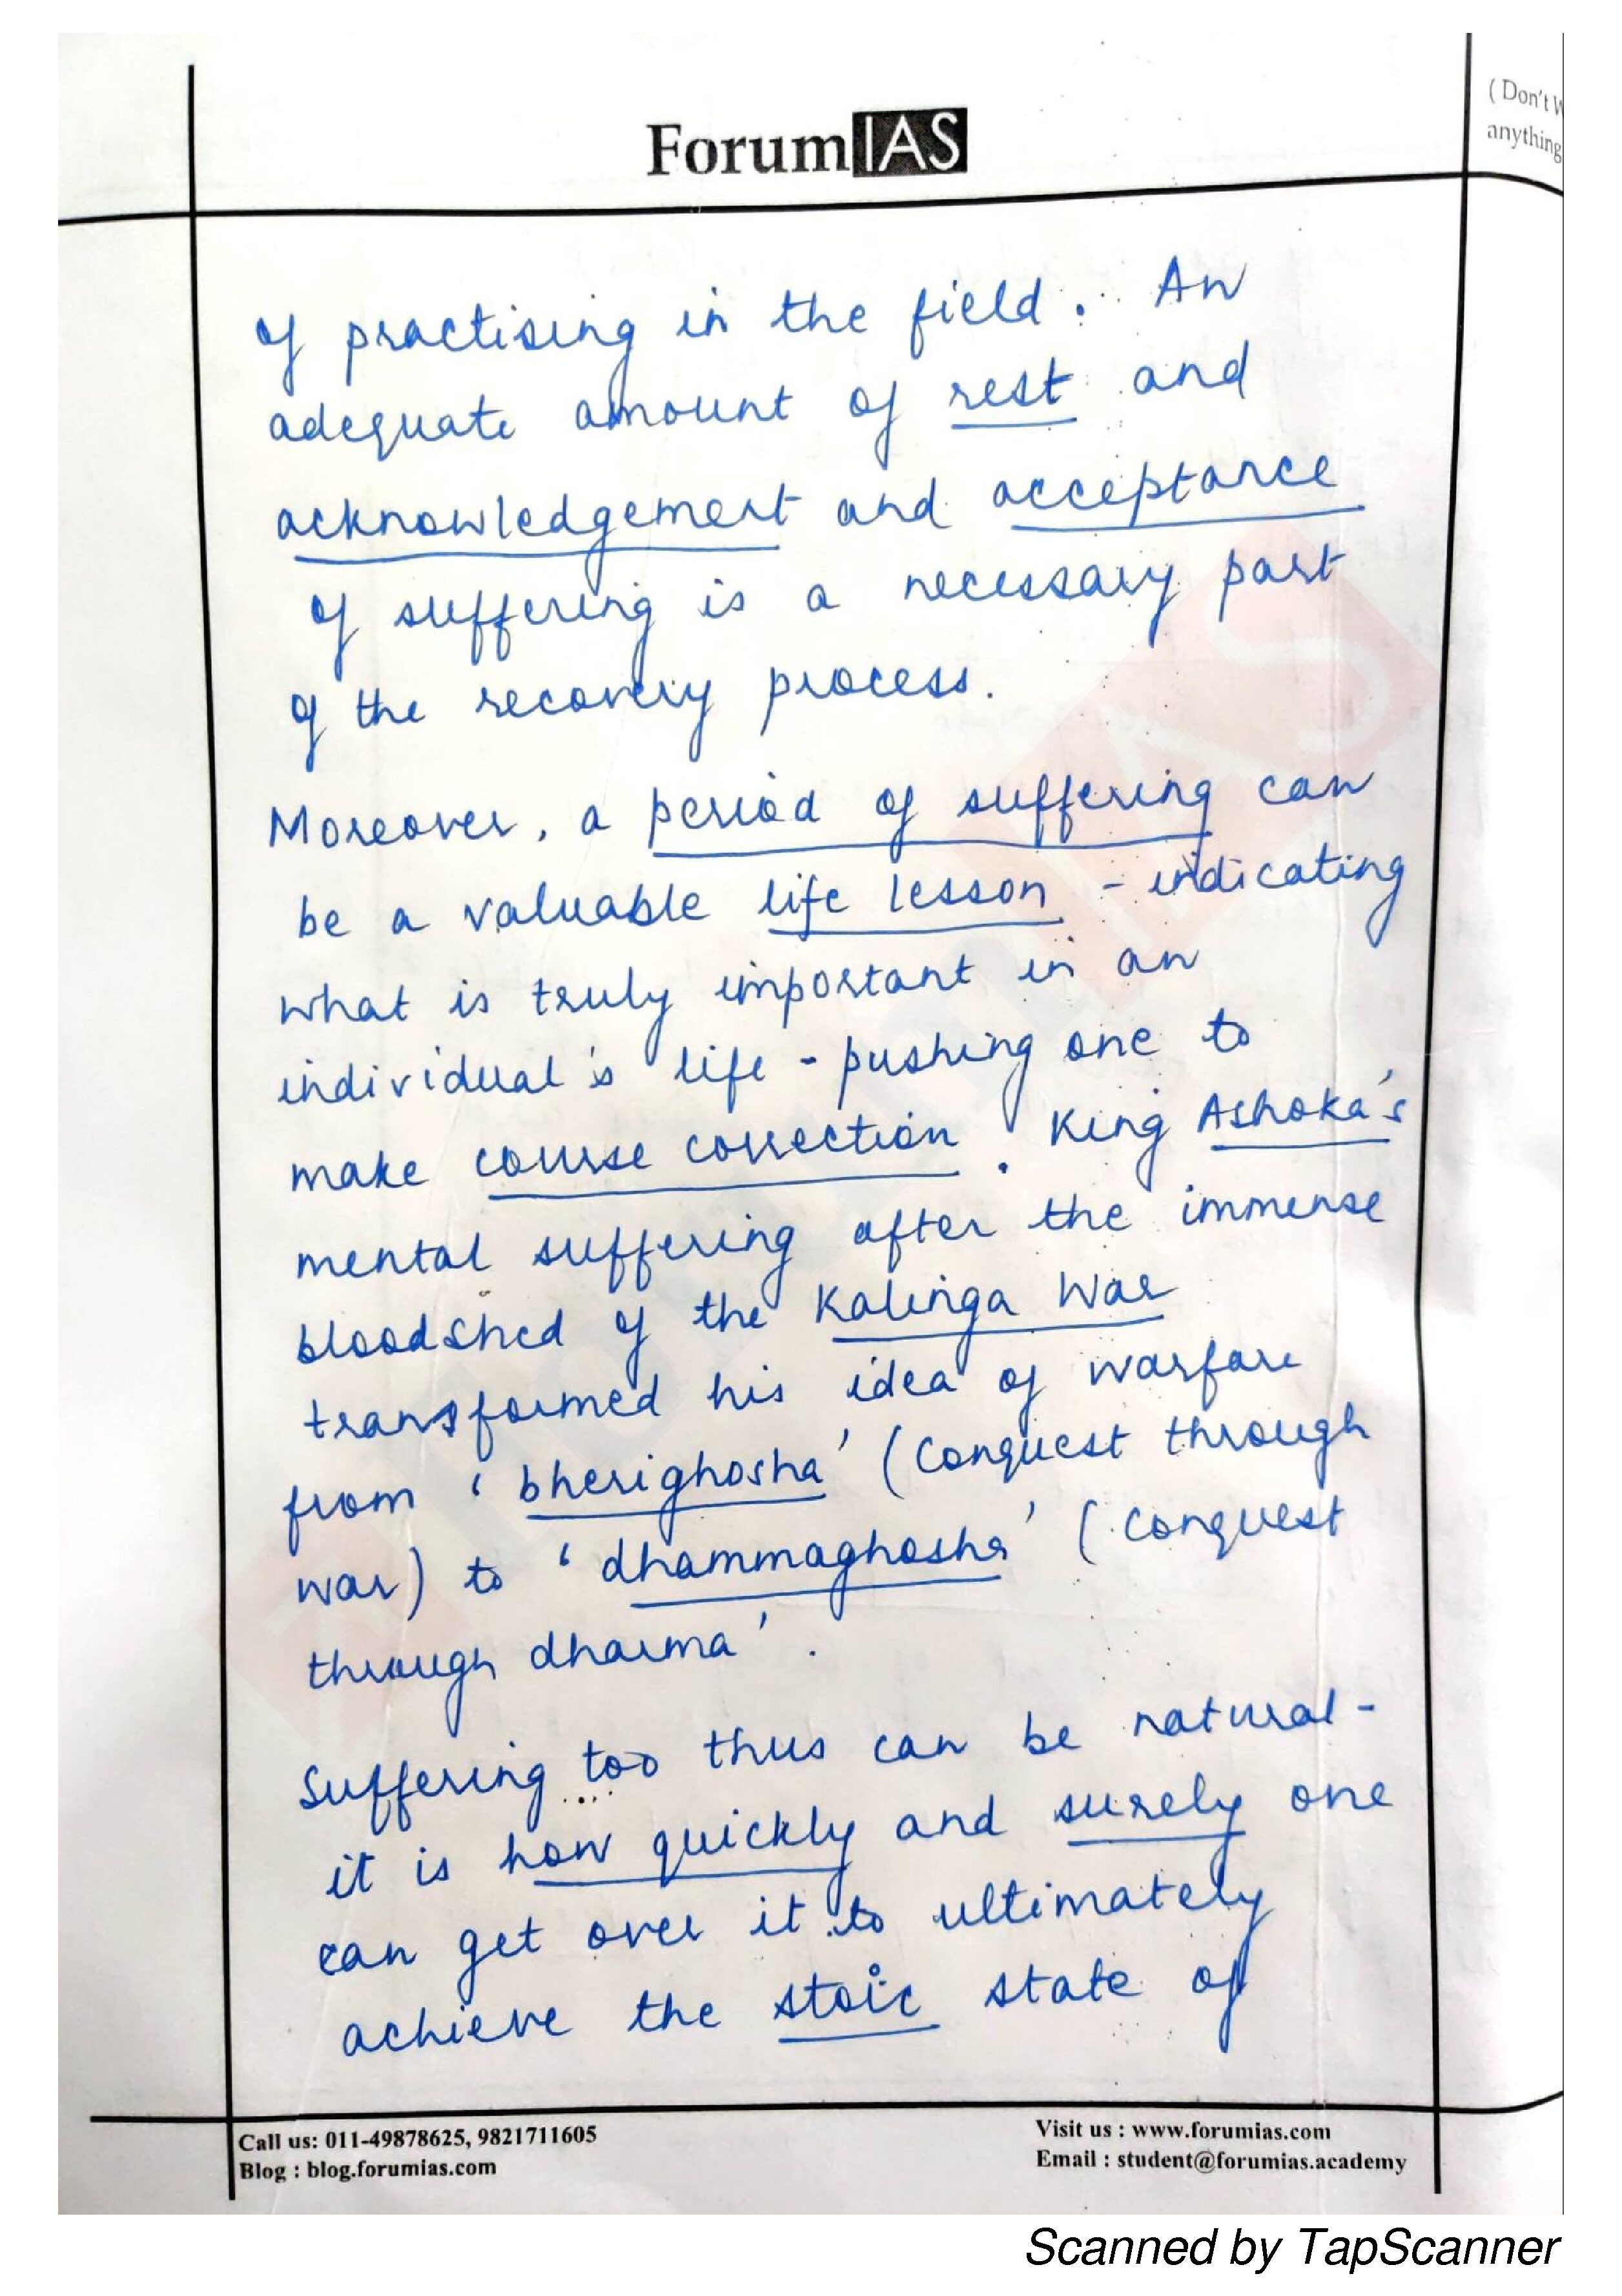 (Don't W
anything
ForumIAS
of practising in the field. An
adequate amount of rest and
acknowledgement and acceptance
of suffering is a necessary part
of the recovery process.
Moreover, a period of suffering can
be a valuable life lesson - indicating
what is truly important in an
individual's life - pushing one to
make course correction. King Ashoka's
mental suffering after the immense
bloodshed of the Kalinga War
transformed his idea of warfare
from 'bherighosha' (Conquest through
war) to 'dhammaghosha' (Conquest
through dharma'.
Suffering too thus can be natural -
it is how quickly and surely one
can get over it to ultimately
achieve the stoic state of
Call us: 011-49878625, 9821711605
Blog : blog.forumias.com
Visit us : www.forumias.com
Email : student@forumias.academy
Scanned by TapScanner